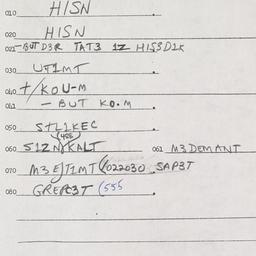 010 HISN
020 HISN
021 - BUT D3R TAT3 1Z HISSD1K
030 UT1MT
040 +/KOU-M
041 - BUT KO.M
050 S+L1KEC
060 S1ZN/KALT 061 M3DEMANT
070 M3 E/T1MT (022030 SAP3T
080 GREPE3T (555